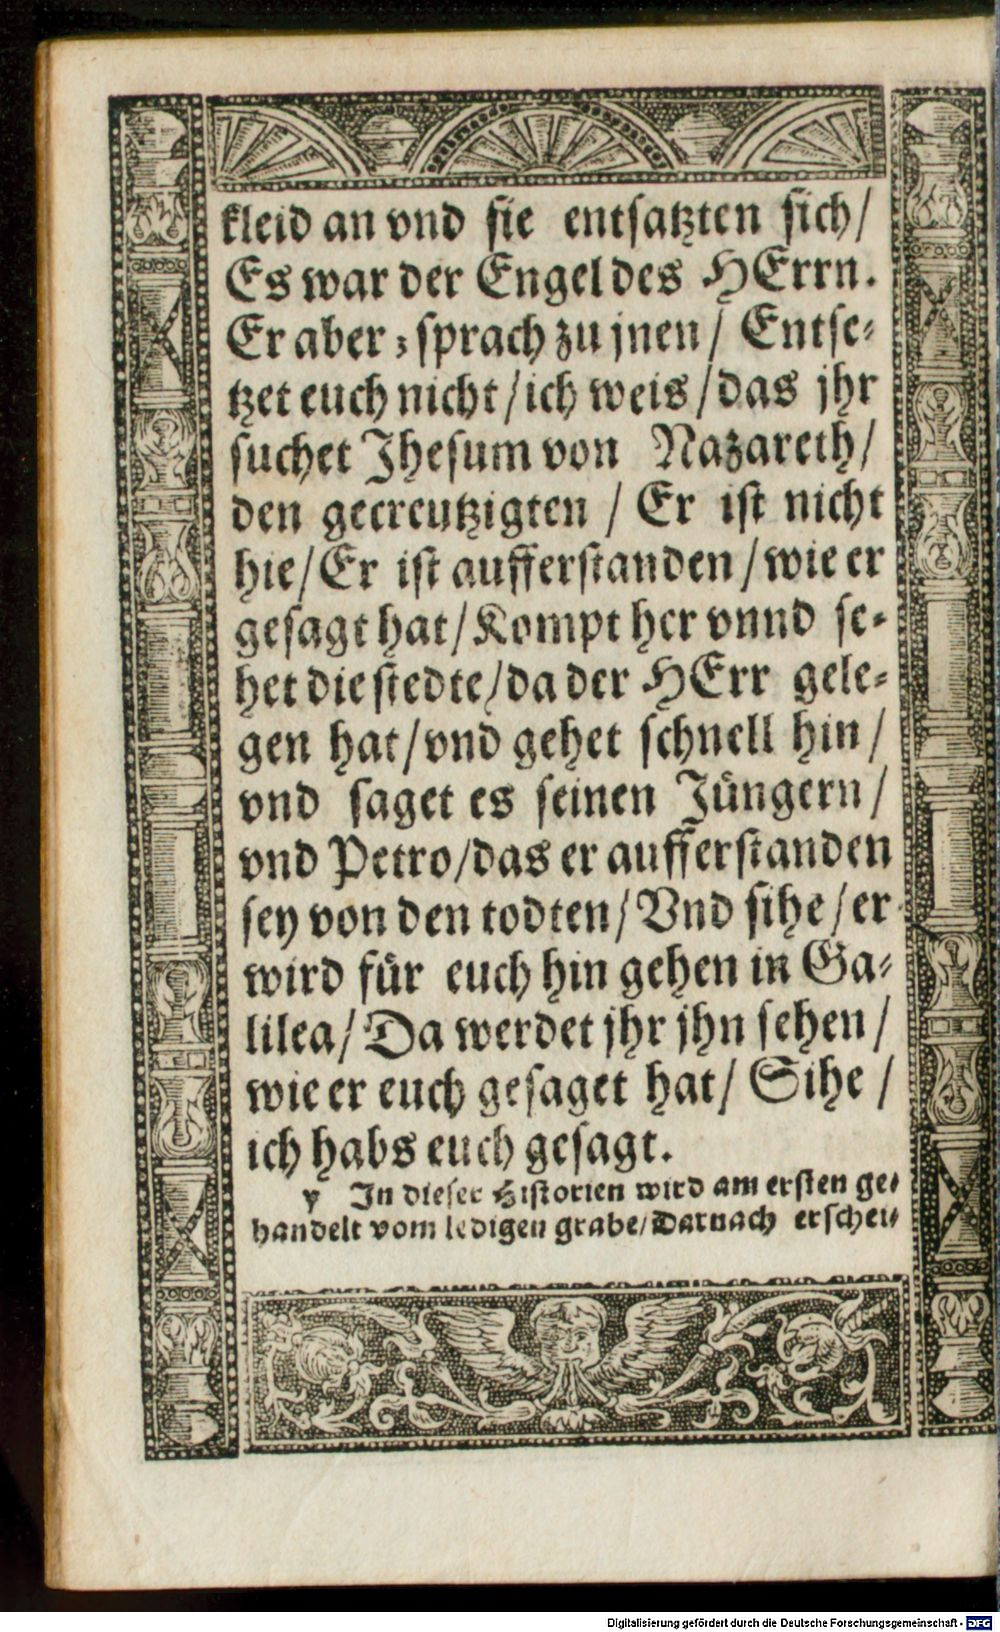 kleid an vnd sie entsatzten sich/
Es war der Engel des HErrn.
Er aber ; sprach zu jnen/ Entse-
tzet euch nicht/ich weis/das jhr
suchet Jhesum von Nazareth/
den gecreutzigten / Er ist nicht
hie/Er ist aufferstanden/wie er
gesagt hat/Kompt her vnnd se-
het die stedte/da der HErr gele-
gen hat/vnd gehet schnell hin/
vnd saget es seinen Jüngern/
vnd Petro/das er aufferstanden
sey von den todten/Vnd sihe/er
wird für euch hin gehen in Ga-
lilea/Da werdet jhr jhn sehen/
wie er euch gesaget hat/ Sihe/
ich habs euch gesagt.
y In dieser Historien wird am ersten ge-
handelt vom ledigen grabe/Darnach erschei-
Digitalisierung gefördert durch die Deutsche Forschungsgemeinschaft - DFG